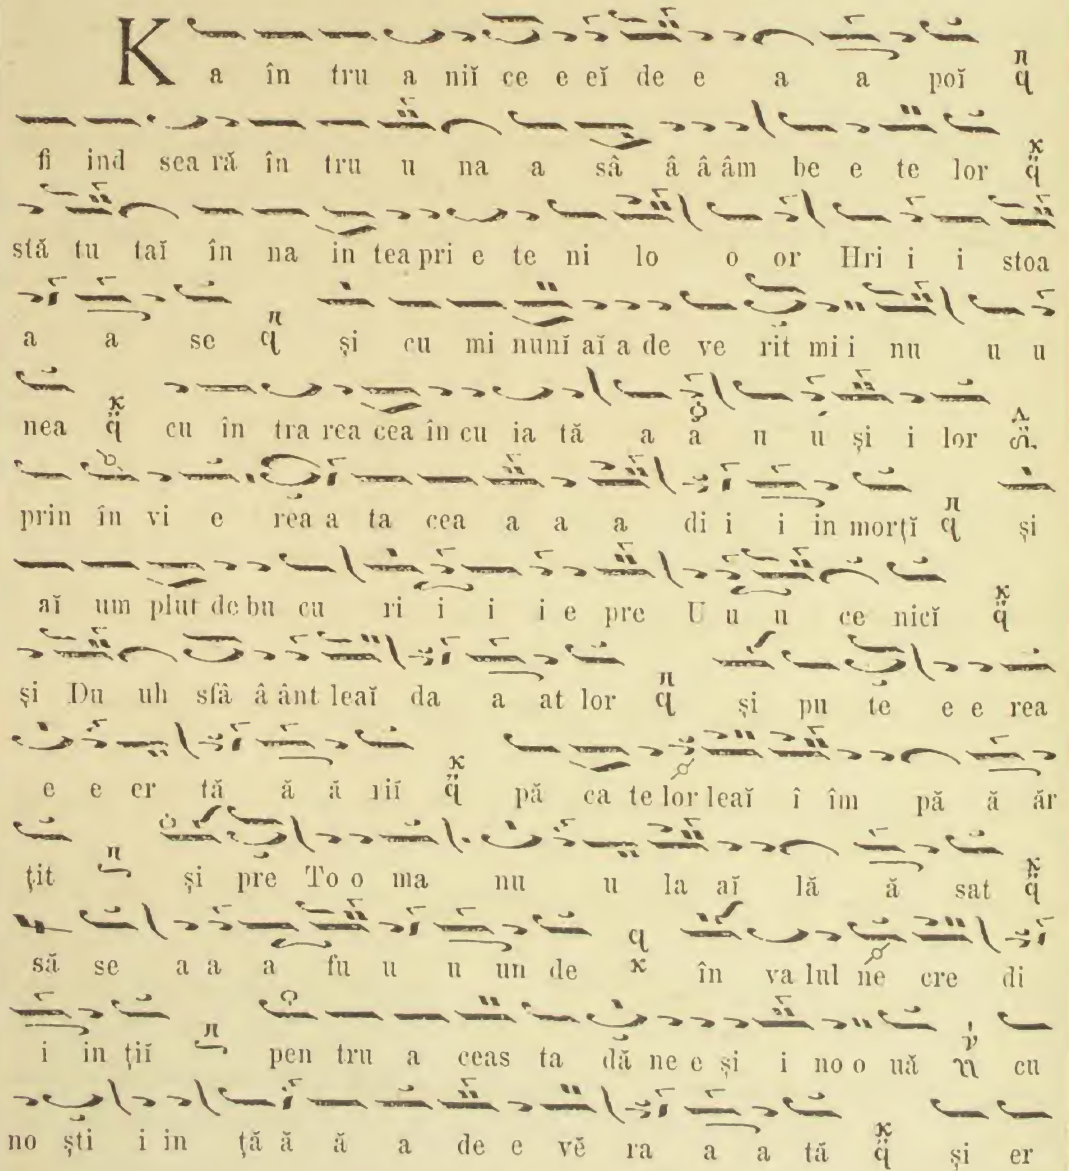 Ka în tru a niĭ ce e eĭ de e a a poĭ
fi ind sea ră în tru u na a sâ â â âm be e te lor
stă tu taĭ în na in tea pri e te ni lo o or Hri i i stoa
a a se și cu mi nunĭ aĭ a de ve rit mi i nu u u
nea cu în tra rea cea în cu ia tă a a u ú și i lor
prin în vi e rea a ta cea a a a di i i in morțĭ și
aĭ um plut de bu cu ri i i i e pre U u u ce nicĭ
și Du uh sfâ â ânt leaĭ da a at lor și pu te e e rea
e e er tă ă ă riĭ pă ca te lor leaĭ î îm pă ă ăr
țit și pre To o ma nu u la aĭ lă ă sat
să se a a a fu u u un de în va lul ne cre di
i in țiĭ pen tru a ceas ta dă ne e și i no o uă cu
no ști i in ță ă ă a de e vĕ ra a a tă și er